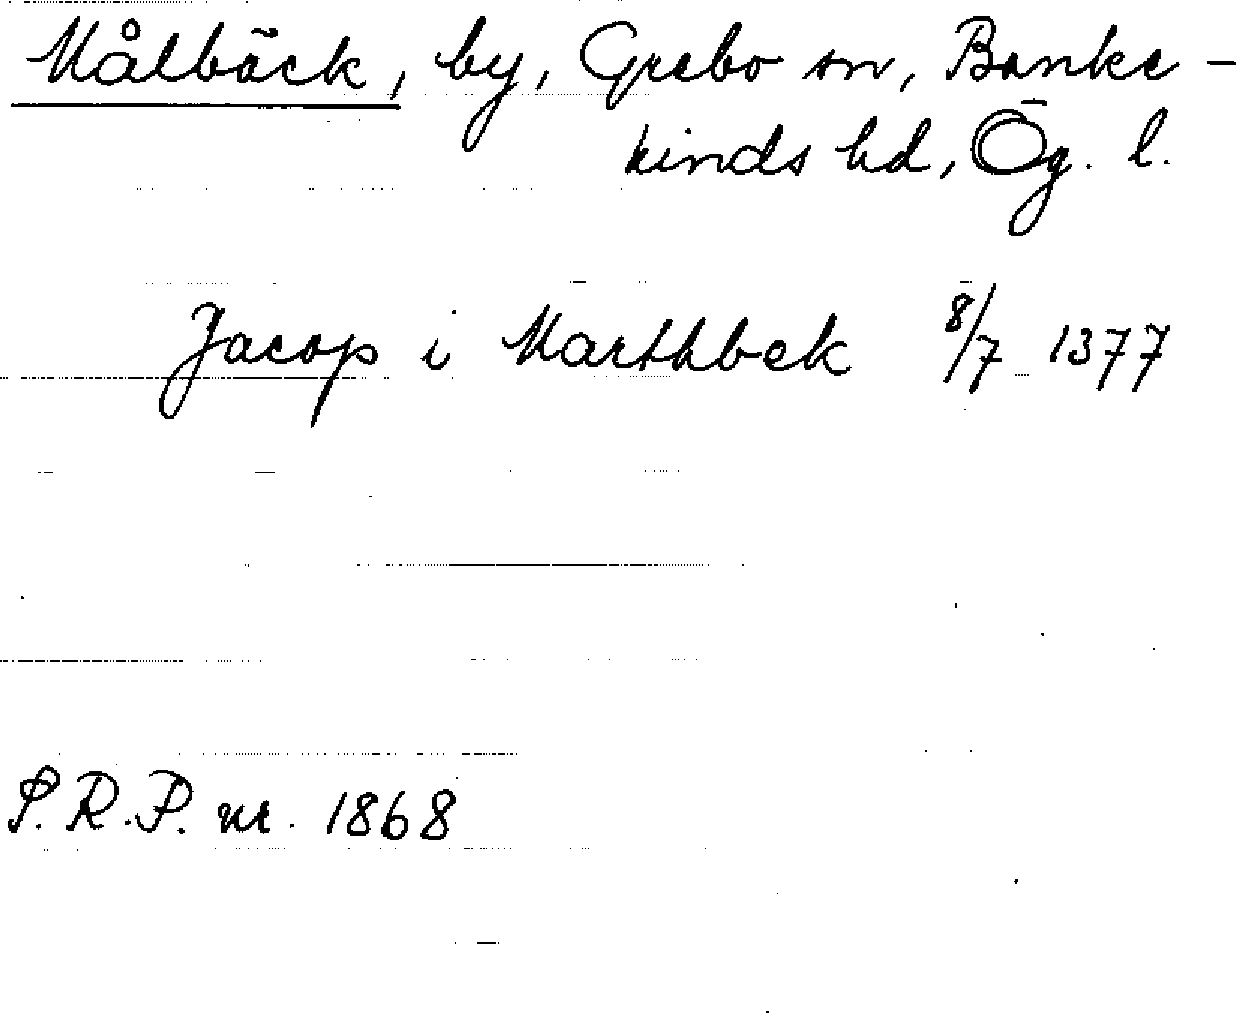 Målbäck, by, Grebo sn, Banke-
kinds hd, Ög. l.
Jacop i Marthbek 8/7 1377
P.R.P. nr. 1868